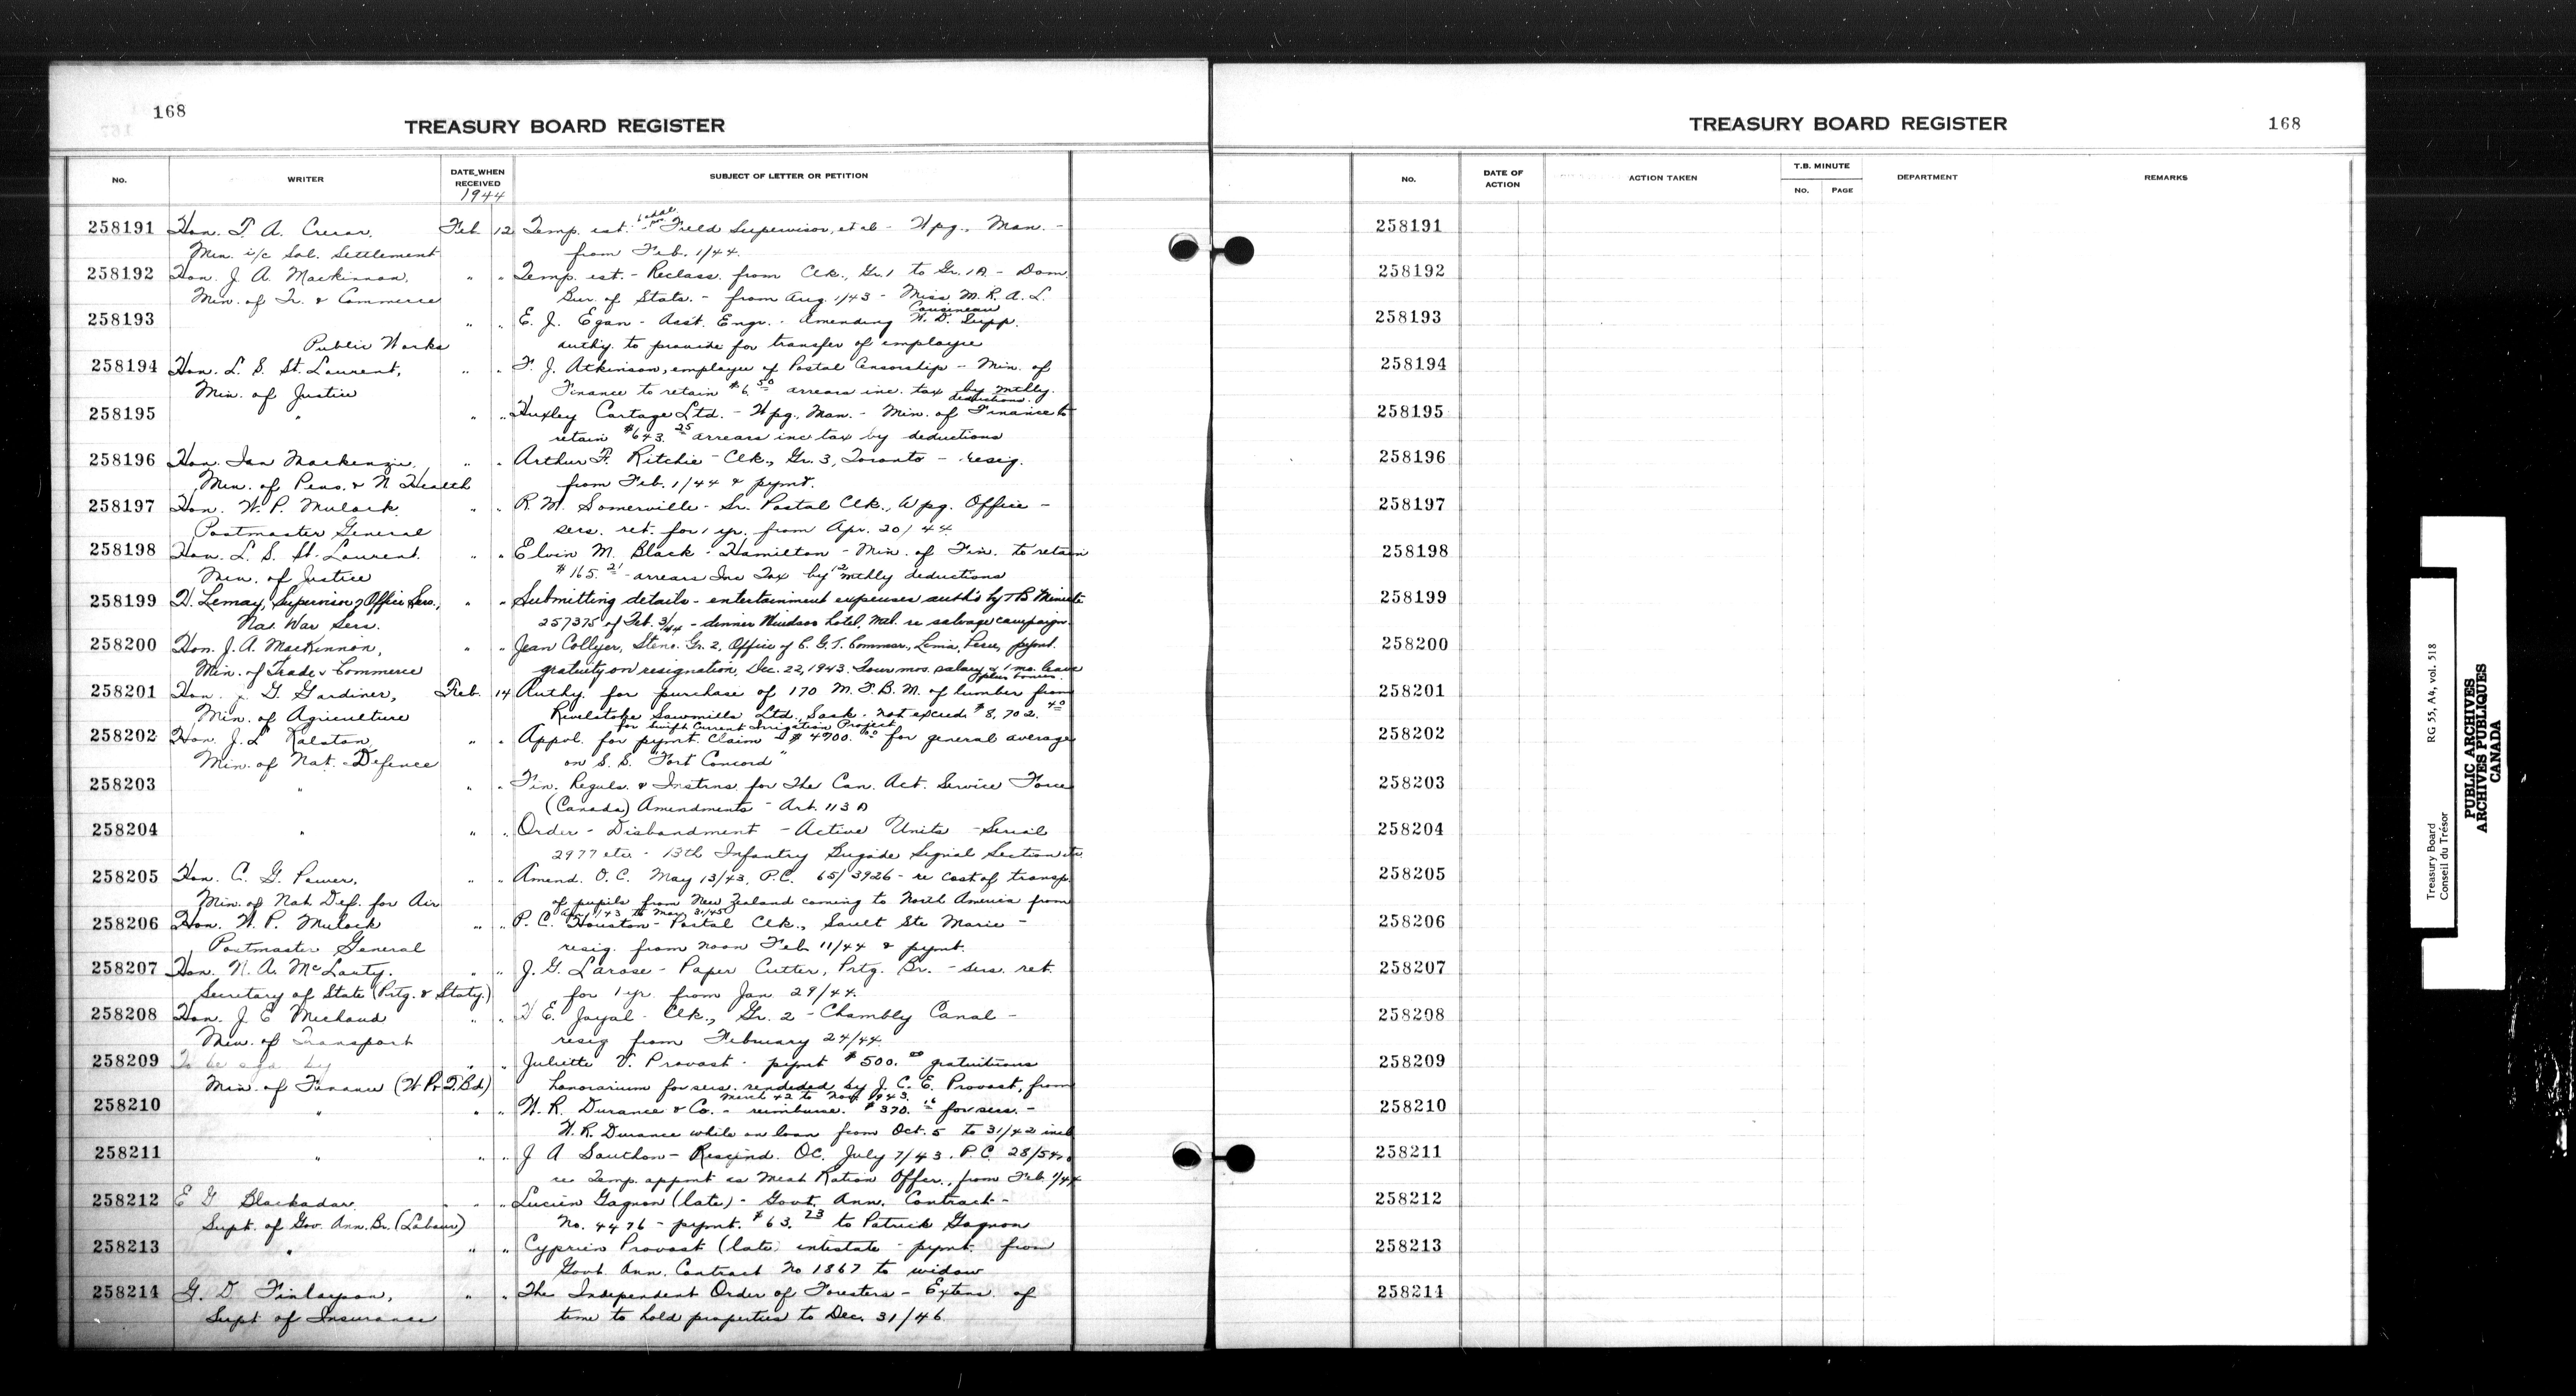 168
TREASURY BOARD REGISTER
No.
WRITER
DATE WHEN RECEIVED
1944
SUBJECT OF LETTER OR PETITION
258191 Hon. T. A. Crerar, Feb. 12 Temp. est. Field Supervisor, et al - Wpg., Man. -
Min. i/c Sol. Settlement from Feb. 1/44.
258192 Hon. J. A. MacKinnon, " " Temp. est. - Reclass. from Clk., Gr. 1 to Gr. 1A - Dom.
Min. of Tr. & Commerce Bur. of Stats. - from Aug. 1/43 - Miss M. R. A. L.
Cousineau
258193 " " E. J. Egan - Asst. Engr. - Amending W. D. Supp.
Public Works authy. to provide for transfer of employee
258194 Hon. L. S. St. Laurent, " " F. J. Atkinson, employee of Postal Censorship - Min. of
Min. of Justice Finance to retain $6.50 arrears inc. tax by mthly.
deductions.
258195 " " " Huxley Cartage Ltd. - Wpg., Man. - Min. of Finance to
retain $643.25 arrears inc tax by deductions
258196 Hon. Ian Mackenzie, " " Arthur F. Ritchie - Clk., Gr. 3, Toronto - resig.
Min. of Pens. & N Health from Feb. 1/44 & pymt.
258197 Hon. W. P. Mulock, " " R. M. Somerville - Sr. Postal Clk., Wpg. Office -
Postmaster General sers. ret. for 1 yr. from Apr. 20/44
258198 Hon. L. S. St. Laurent. " " Elvin M. Black - Hamilton - Min. of Fin. to retain
Min. of Justice $165.21 - arrears Inc Tax by 12 mthly deductions
258199 H. Lemay, Supervisor of Office Sers., " " Submitting details - entertainment expenses auth'd by TB Minute
Nat. War Sers. 257375 of Feb. 3/44 - dinner Windsor Hotel, Mtl. re salvage campaign.
258200 Hon. J. A. MacKinnon, " " Jean Collyer, Steno. Gr. 2, Office of C. G. T. Commsr., Lima, Peru, pymt.
Min. of Trade & Commerce gratuity on resignation, Dec. 22, 1943. Four mos. salary & 1 mo. leave
plus bonus.
258201 Hon. J. G. Gardiner, Feb. 14 Authy. for purchase of 170 M. F. B. M. of lumber from
Min. of Agriculture Revelstoke Sawmills Ltd., Sask. - not exceed $8,702.40
for Swift Current Irrigation Project
258202 Hon. J. L. Ralston, " " Appvl. for pymt. claim - $4900.00 for general average
Min. of Nat. Defence on S. S. "Fort Concord"
258203 " " " Fin. Reguls. & Instrns. for The Can. Act. Service Force
(Canada) Amendments - Art. 113 A
258204 " " " Order - Disbandment - Active Units - Serial
2977 etc. - 13th Infantry Brigade Signal Section etc
258205 Hon. C. G. Power, " " Amend. O. C. May 13/43, P.C. 65/3926 - re cost of transp.
Min. of Nat. Def. for Air of pupils from New Zealand coming to North America from
Apr. 1/43 to Mar. 31/45
258206 Hon. W. P. Mulock " " P. C. Houston - Postal Clk., Sault Ste Marie -
Postmaster General resig. from noon Feb. 11/44 & pymt.
258207 Hon. N. A. McLarty. " " J. G. Larose - Paper Cutter, Prtg. Br. - sers. ret.
Secretary of State (Prtg. & Staty.) for 1 yr. from Jan. 29/44.
258208 Hon. J. E. Michaud " " E. Jayal - Clk., Gr. 2 - Chambly Canal -
Min. of Transport resig from February 24/44.
258209 To be sgd. by " " Juliette V. Provost - pymt $500.00 gratuitous
Min. of Finance (W. Pr. T. Bd.) honorarium for sers. rendered by J. C. E. Provost, from
March 42 to Nov. 1943.
258210 " " " W. R. Durance & Co. - reimburse. $370.16 for sers. -
W. R. Durance while on loan from Oct. 5 to 31/42 incl
258211 " " " J A Southon - Rescind. O.C. July 7/43. P.C.
re Temp. appmt as Meat Ration Offcr., from Feb. 1/44
258212 E G Blackadar, " " Lucien Gagnon (late) - Govt. Ann. Contract -
Supt. of Gov. Ann. Br. (Labour) No. 4476 - pymt. $63.23 to Patrick Gagnon
258213 " " " Cyprien Provost (late) intestate - pymt. from
Govt. Ann. Contract No 1867 to widow
258214 G. D. Finlayson, " " The Independent Order of Foresters - Extens. of
Supt of Insurance time to hold properties to Dec. 31/46
TREASURY BOARD REGISTER
168
No.
DATE OF ACTION
ACTION TAKEN
T.B. MINUTE
No.
PAGE
DEPARTMENT
REMARKS
258191
258192
258193
258194
258195
258196
258197
258198
258199
258200
258201
258202
258203
258204
258205
258206
258207
258208
258209
258210
258211
258212
258213
258214
Treasury Board
Conseil du Trésor
RG 55, A4, vol. 518
PUBLIC ARCHIVES
ARCHIVES PUBLIQUES
CANADA